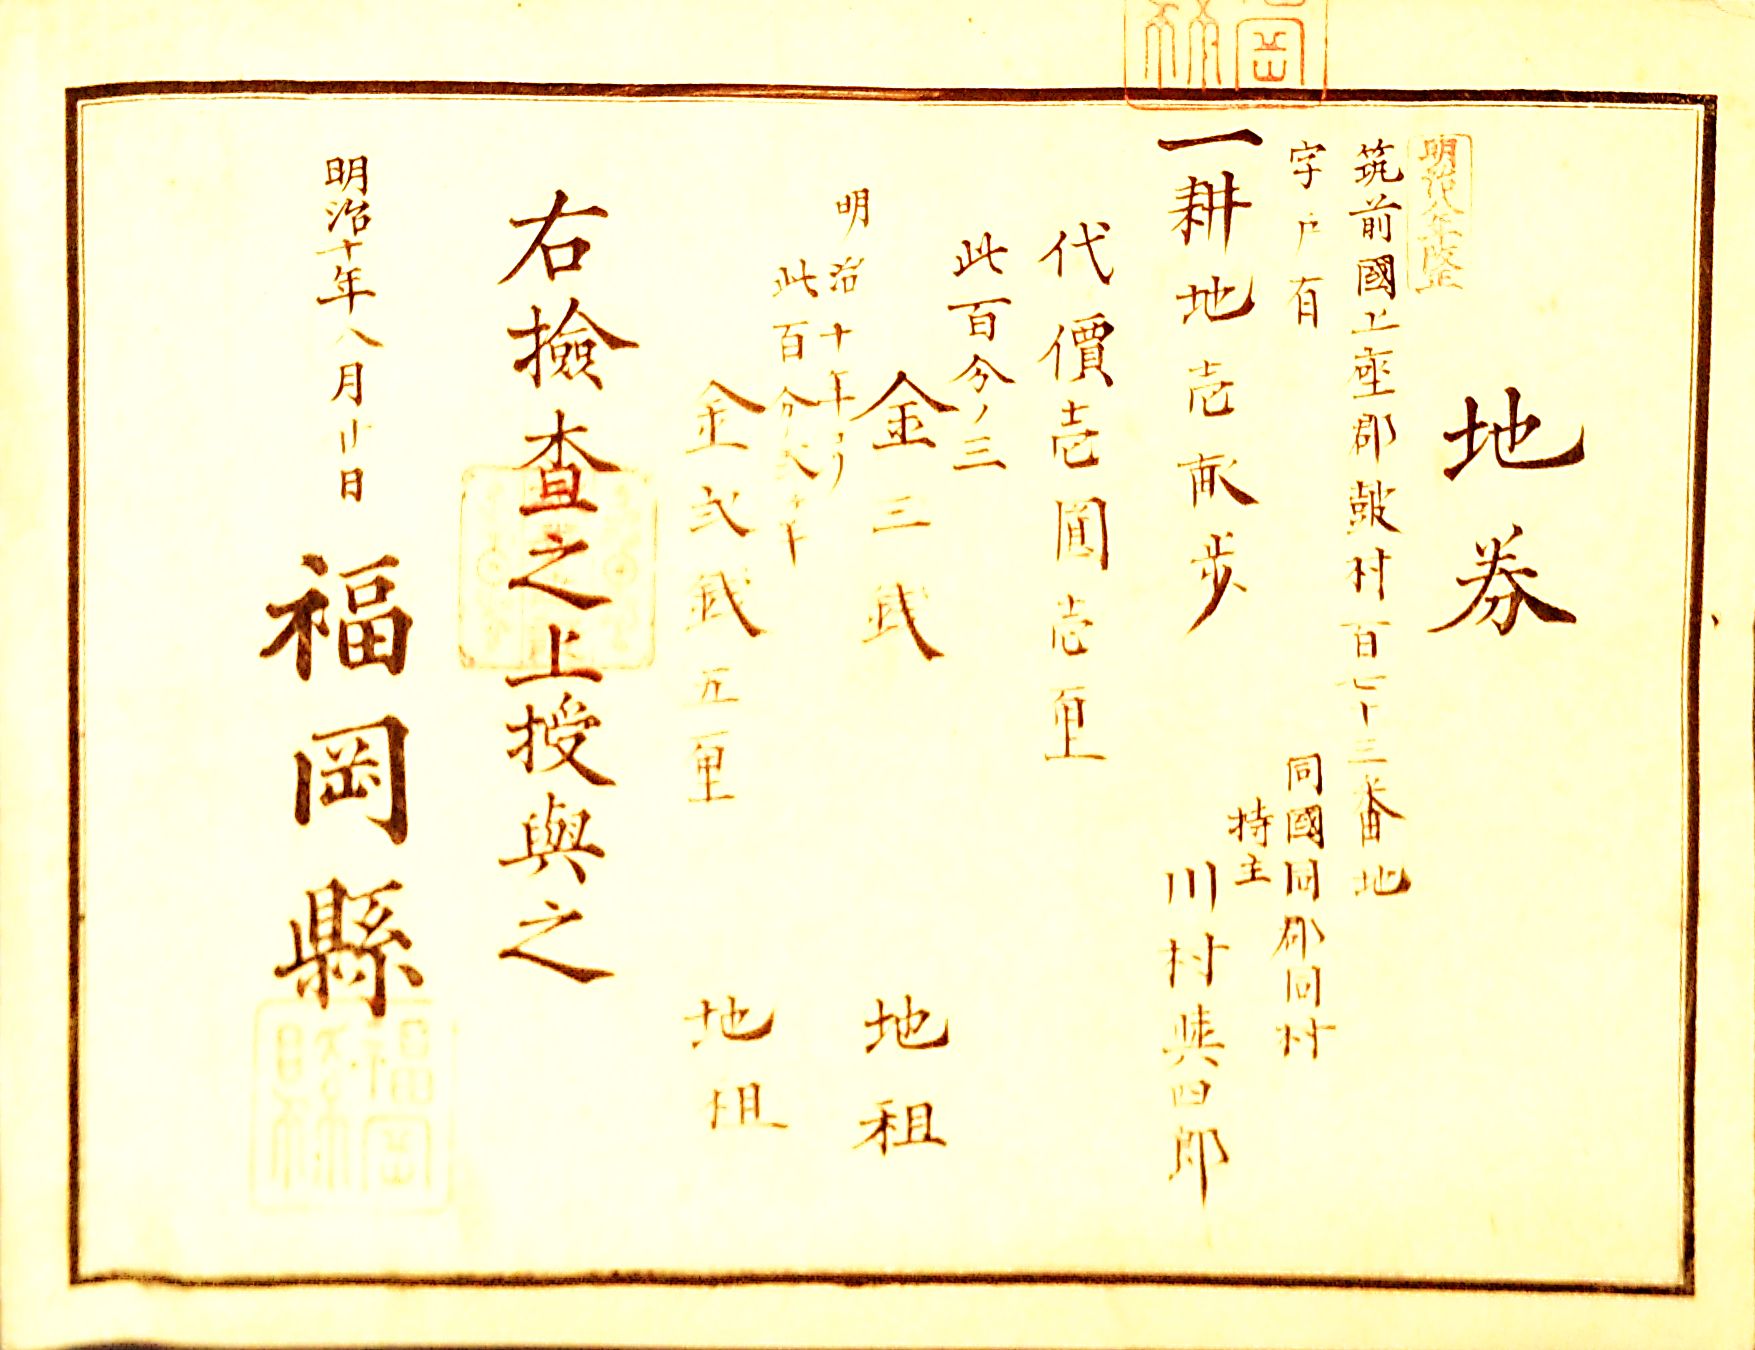 地券
明治八年改正
筑前國上座郡鼓村百七十三番地
字戸有
同國同郡同村
持主
川村與四郎
一耕地壱畝歩
代價壱圓壱厘
此百分ノ三
金三銭
地租
明治十年ヨリ
此百分ノ二ケ半
金弐銭五厘
地租
右撿査之上授與之
明治十年八月廿日
福岡縣
福岡縣